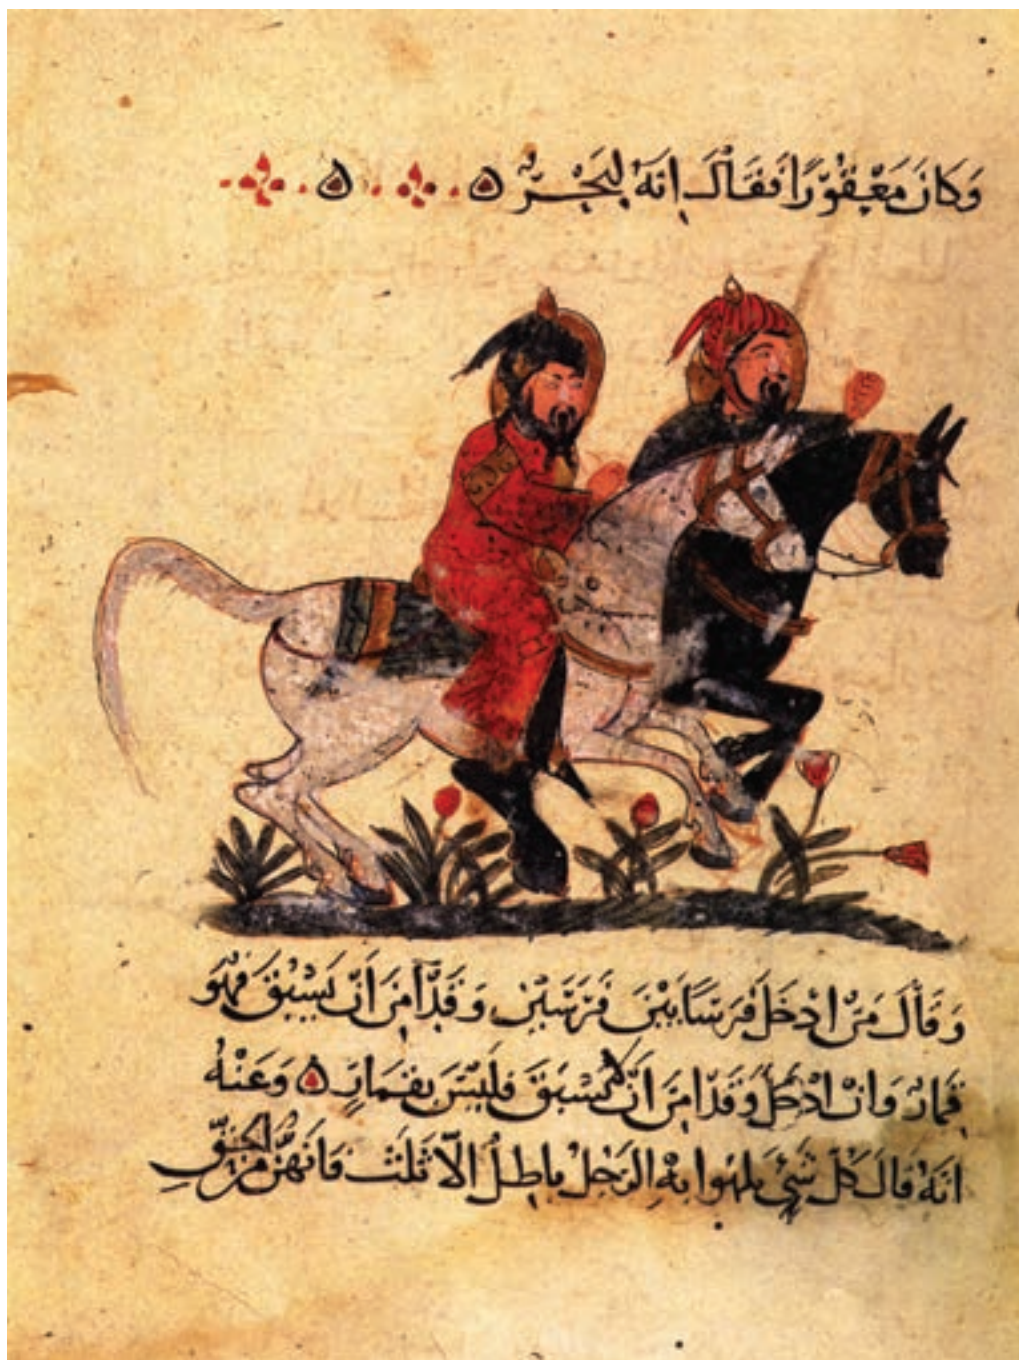 وَكَانَ مَعْقُوْرًا فَقَالَ اِنَّهُ لَبَحْرٌ ۵ ۵
وَقَالَ مَنْ اَدْخَلَ فَرَسًا بَيْنَ فَرَسَيْنِ وَقَدْ اَمِنَ اَنْ يَسْبِقَ فَهُوَ
قِمَارٌ وَاِنْ اَدْخَلَ وَقَدْ اَمِنَ اَنْ يَسْبِقَ فَلَيْسَ بِقِمَارٍ ۵ وَعَنْهُ
اَنَّهُ قَالَ كُلُّ شَيْءٍ يَلْهُوا بِهِ الرَّجُلُ بَاطِلٌ اِلَّا ثَلَثٌ فَاِنَّهُنَّ مِنَ الْحَقِّ